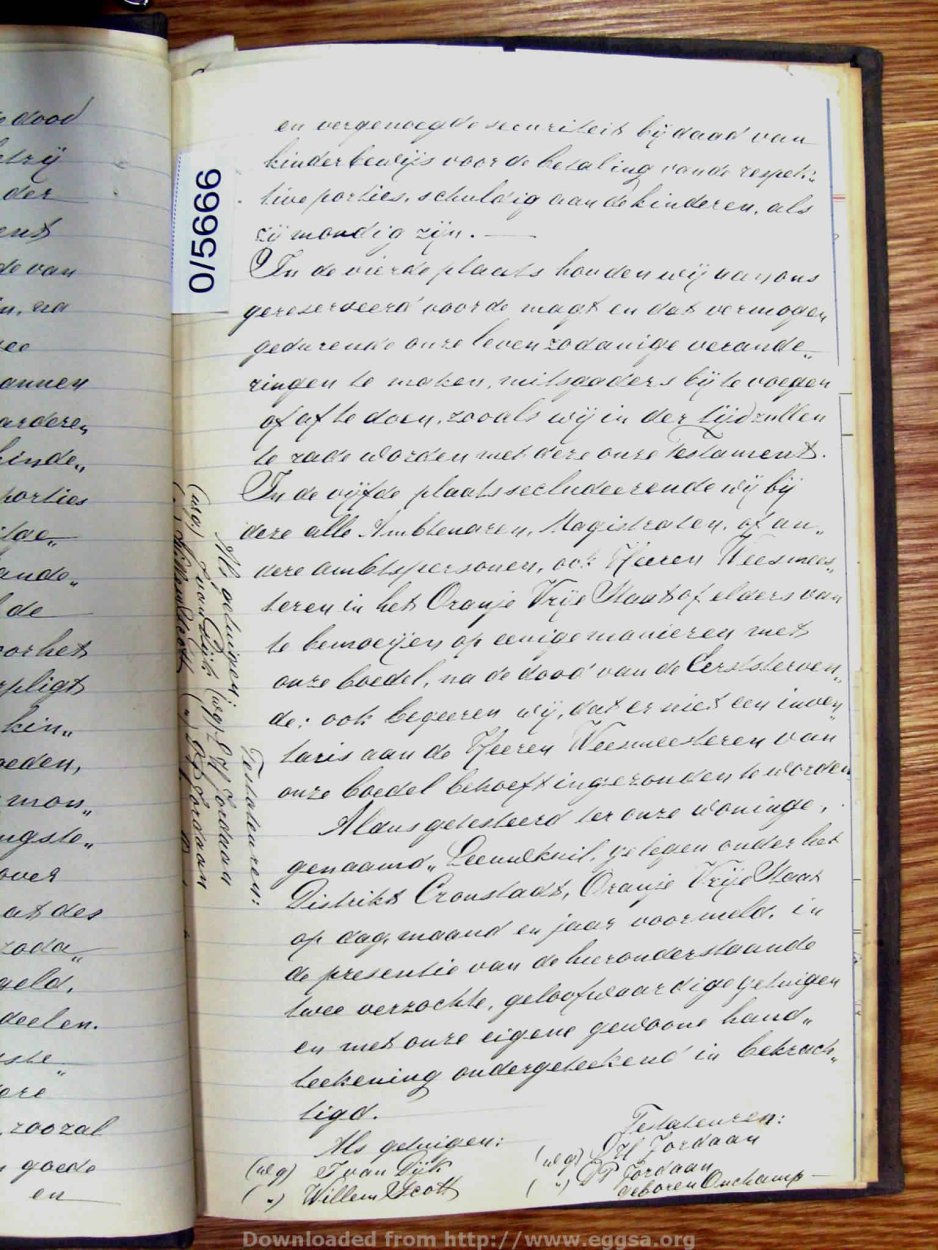 en vergenoegde securiteit bij daad van
kinderbewijs voor de betaling van de respek:
tive porties, schuldig aan de kinderen, als
zij mondig zijn. —
In de vierde plaats houden wij aan ons
gereserveerd voor de magt en dat vermogen
gedurende onze leven zodanige verande„
ringen te maken, mitsgaders bij te voegen
of af te doen, zooals wij in der tijd zullen
te rade worden met deze onze Testament.
In de vijfde plaats secludeerende wij bij
deze alle Ambtenaren, Magistraten, of an„
dere ambtspersonen, ook Heeren Weesmees„
teren in het Oranje Vrije Staat of elders van
te bemoeijen op eenige manieren met
onze boedel, na de dood van de Eerststerven„
de: ook begeeren wij, dat er niet een inven„
taris aan de Heeren Weesmeesteren van
onze boedel behoeft ingezonden te worden
Aldus getesteerd ter onze woninge,
genaamd „Leeuwkuil, gelegen onder het
Distrikt Cronstadt, Oranje Vrije Staat
op dag, maand en jaar voormeld, in
de presentie van de hieronderstaande
twee verzochte, geloofwaardige getuigen
en met onze eigene gewoone hand„
teekening ondergeteekend in bekrach„
tigd.
Als getuigen:
(wg) J van Dijk
( „ ) Willem Scott
Testateuren:
(wg) Jordaan
( „ ) Jordaan
geboren
Als getuigen:
(wg) J van Dijk
( „ ) Willem Scott
Testateuren:
(wg) Jordaan
( „ ) Jordaan
0/5666
dood
der
de van
n, na
anney
arderen
kinde„
porties
ande„
de
or het
rpligt
kin„
eden,
mon„
ngste„
over
at des
zoda„
geld,
deelen.
zooral
goede
en
Downloaded from http://www.eggsa.org